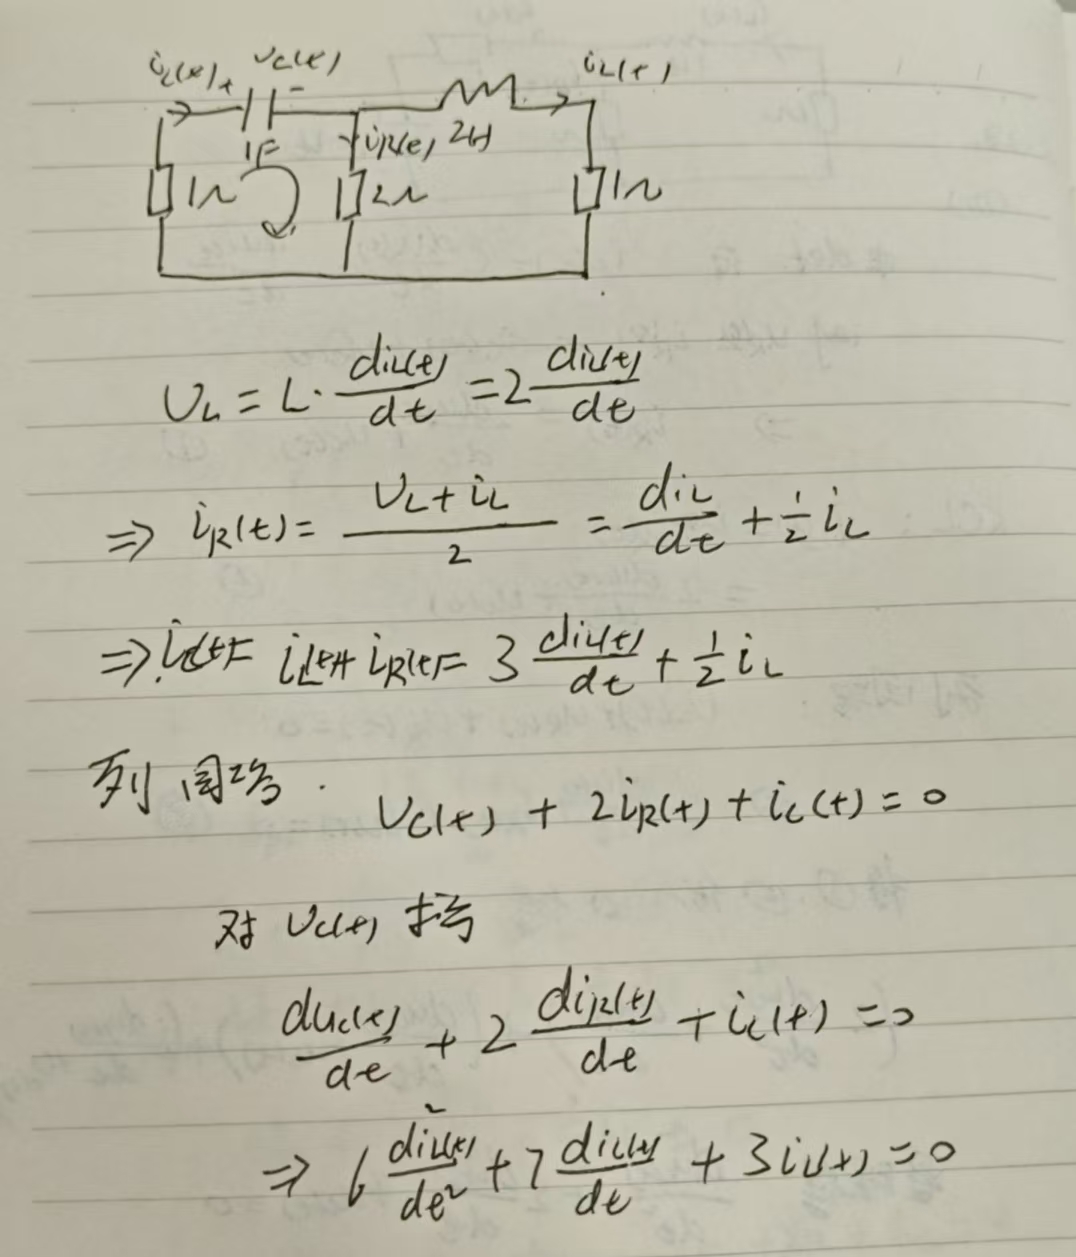 i_C(t) + u_C(t) - i_L(t)
1F i_R(t) 2H
1Ω 2Ω 1Ω
U_L = L· di_L(t)/dt = 2 di_L(t)/dt
⇒ i_R(t) = (U_L + i_L)/2 = di_L/dt + 1/2 i_L
⇒ i_C(t) = i_L(t) + i_R(t) = 3 di_L(t)/dt + 1/2 i_L
列回路.
U_C(t) + 2i_R(t) + i_C(t) = 0
对 U_C(t)
du_C(t)/dt + 2 di_R(t)/dt + i_C(t) = 0
⇒ 6 d²i_L(t)/dt² + 7 di_L(t)/dt + 3i_L(t) = 0